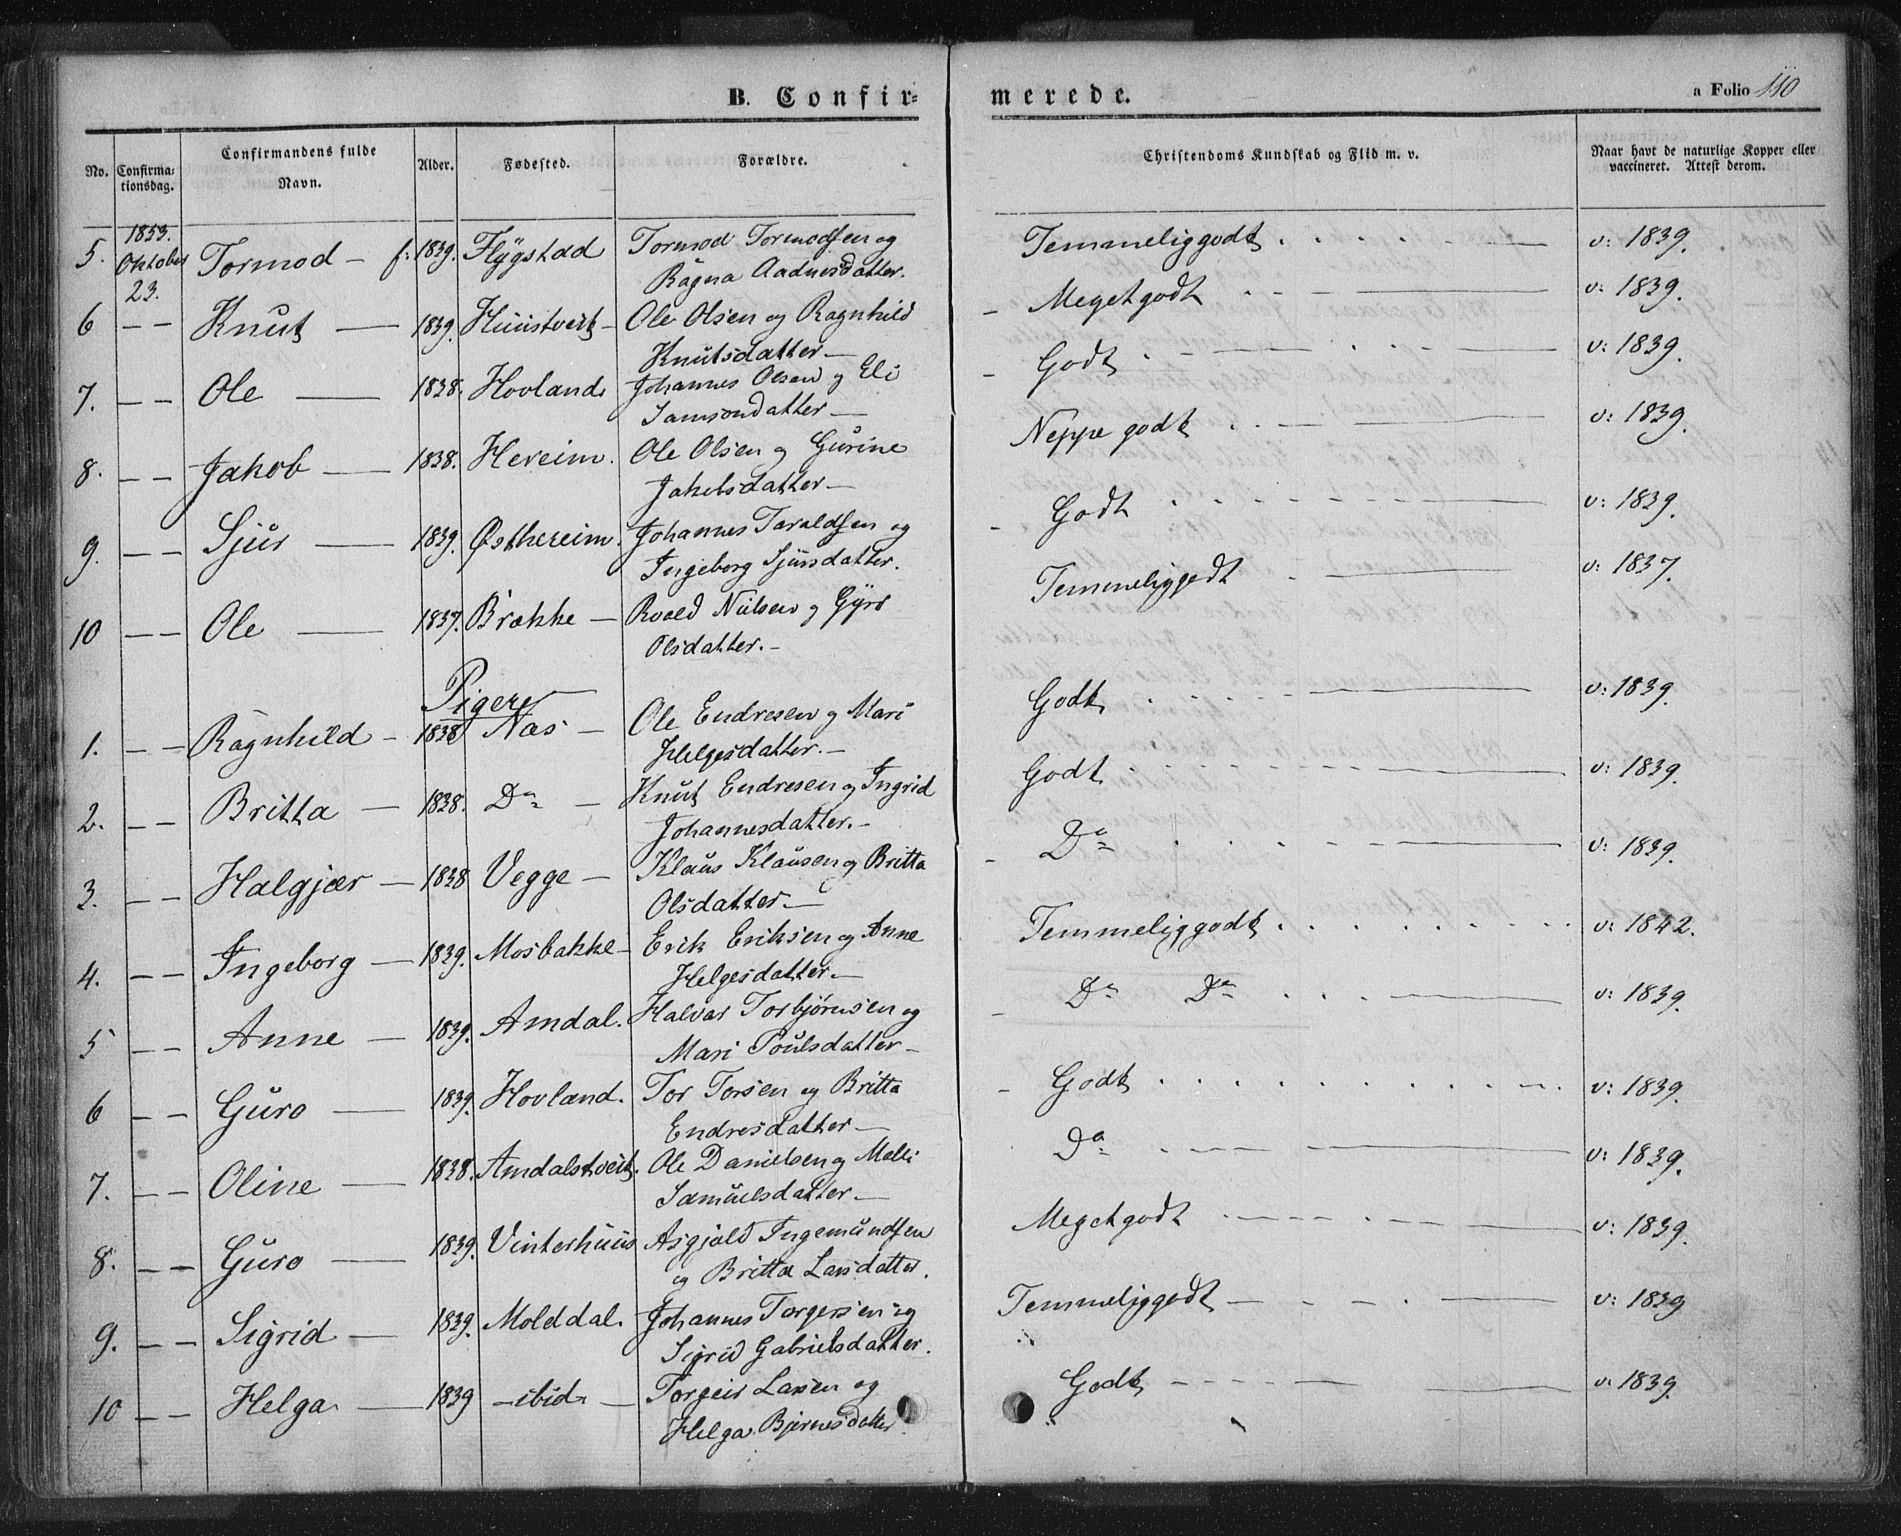 B. Confir-
merede.
a Folio 110
No.
Confirma-
tionsdag.
Confirmandens fulde
Navn.
Alder.
Fødested.
Forældre.
Christendoms Kundskab og Flid m. v.
Naar havt de naturlige Kopper eller
vaccineret. Attest derom.
1853.
5. Oktober Tormod – f: 1839. Flÿgstad Tormod Tormodsen og Temmeliggodt v: 1839.
23. Ragna Aadnesdatter.
6 – – Knut – 1839. Huustveit – Ole Olsen og Ragnhild Megetgodt v: 1839.
Knutsdatter –
7. – – Ole – 1838. Hovland Johannes Olsen og Eli Godt v: 1839.
Samsondatter –
8. – – Jakob – 1838. Hereim. Ole Olsen og Gurine Neppe godt v: 1839.
Jakobsdatter –
9. – – Sjur – 1839. Østhereim. Johannes Taraldsen og Godt v: 1839.
Ingeborg Sjursdatter.
10 – – Ole – 1837. Brække – Roald Nielsen og Gÿro Temmeliggodt v: 1837.
Olsdatter. –
Piger
1. – – Ragnhild – 1838 Næs – Ole Endresen og Mari Godt v: 1839.
Helgesdatter. –
2. – – Britta – 1838. Do – Knut Endresen og Ingrid Godt v: 1839.
Johannesdatter. –
3. – – Halgjær – 1838 Vegge – Klaus Klausen og Britta Do v: 1839.
Olsdatter –
4. – – Ingeborg – 1839. Mosbakke – Erik Eriksen og Anne Temmeliggodt v: 1842.
Helgesdatter –
5 – – Anne – 1839. Amdal. Halvar Torbjørnsen og Do Do v: 1839.
Mari Poulsdatter –
6 – – Guro – 1839. Hovland. Tor Torsen og Britta Godt v: 1839.
Endresdatter –
7. – – Oline – 1838. Amdalstveit. Ole Danielsen og Malli Do v: 1839.
Samuelsdatter –
8. – – Guro – 1839. Vinterhuus Asgjald Ingemundsen Megetgodt v: 1839.
og Britta Larsdatter.
9. – – Sigrid – 1839. Molddal. Johannes Torgersen og Temmeliggodt v: 1839
Sigrid Gabrielsdatter.
10 – – Helga – 1839 – ibid – Torgeir Larsen og Godt v: 1839.
Helga Bjørnesdatter